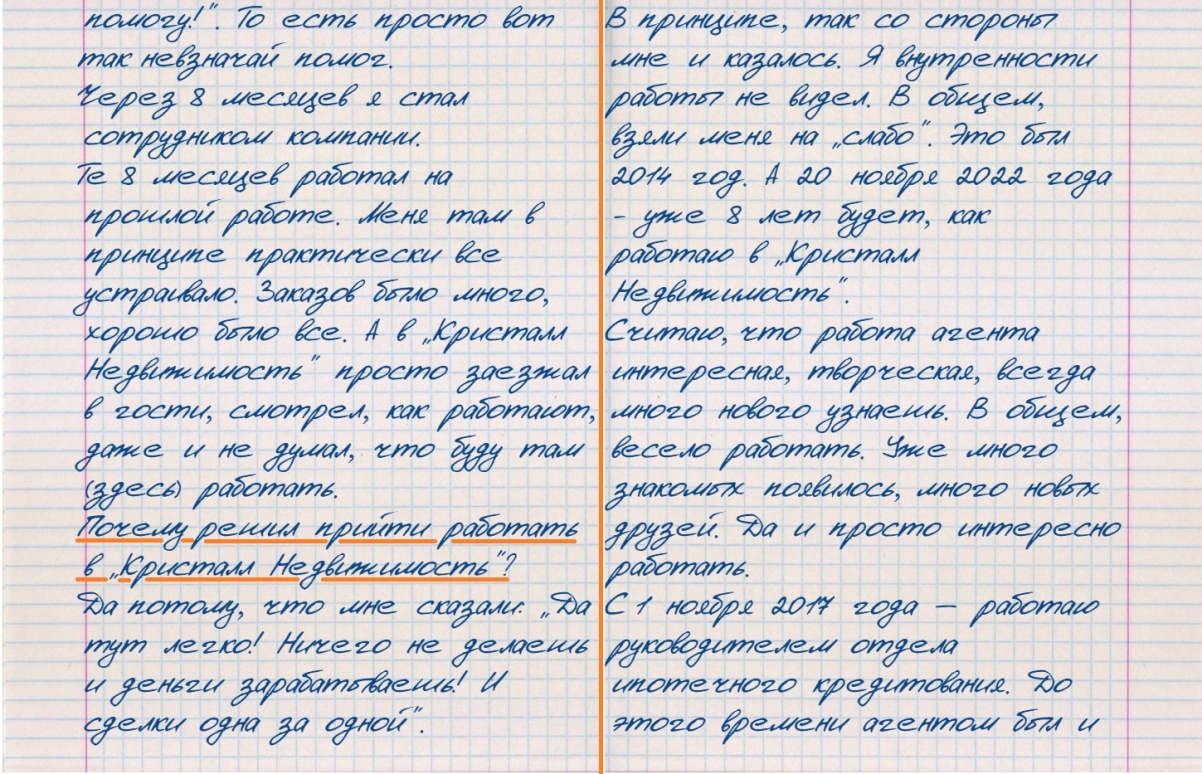 помогу!". То есть просто вот
так невзначай помог.
Через 8 месяцев я стал
сотрудником компании.
Те 8 месяцев работал на
прошлой работе. Меня там в
принципе практически все
устраивало. Заказов было много,
хорошо было все. А в „Кристалл
Недвижимость" просто заезжал
в гости, смотрел, как работают,
даже и не думал, что буду там
(здесь) работать.
Почему решил прийти работать
в „Кристалл Недвижимость"?
Да потому, что мне сказали: „Да
тут легко! Ничего не делаешь
и деньги зарабатываешь! И
сделки одна за одной".
В принципе, так со стороны
мне и казалось. Я внутренности
работы не видел. В общем,
взяли меня на „слабо". Это был
2014 год. А 20 ноября 2022 года
- уже 8 лет будет, как
работаю в „Кристалл
Недвижимость".
Считаю, что работа агента
интересная, творческая, всегда
много нового узнаешь. В общем,
весело работать. Уже много
знакомых появилось, много новых
друзей. Да и просто интересно
работать.
С 1 ноября 2017 года — работаю
руководителем отдела
ипотечного кредитования. До
этого времени агентом был и